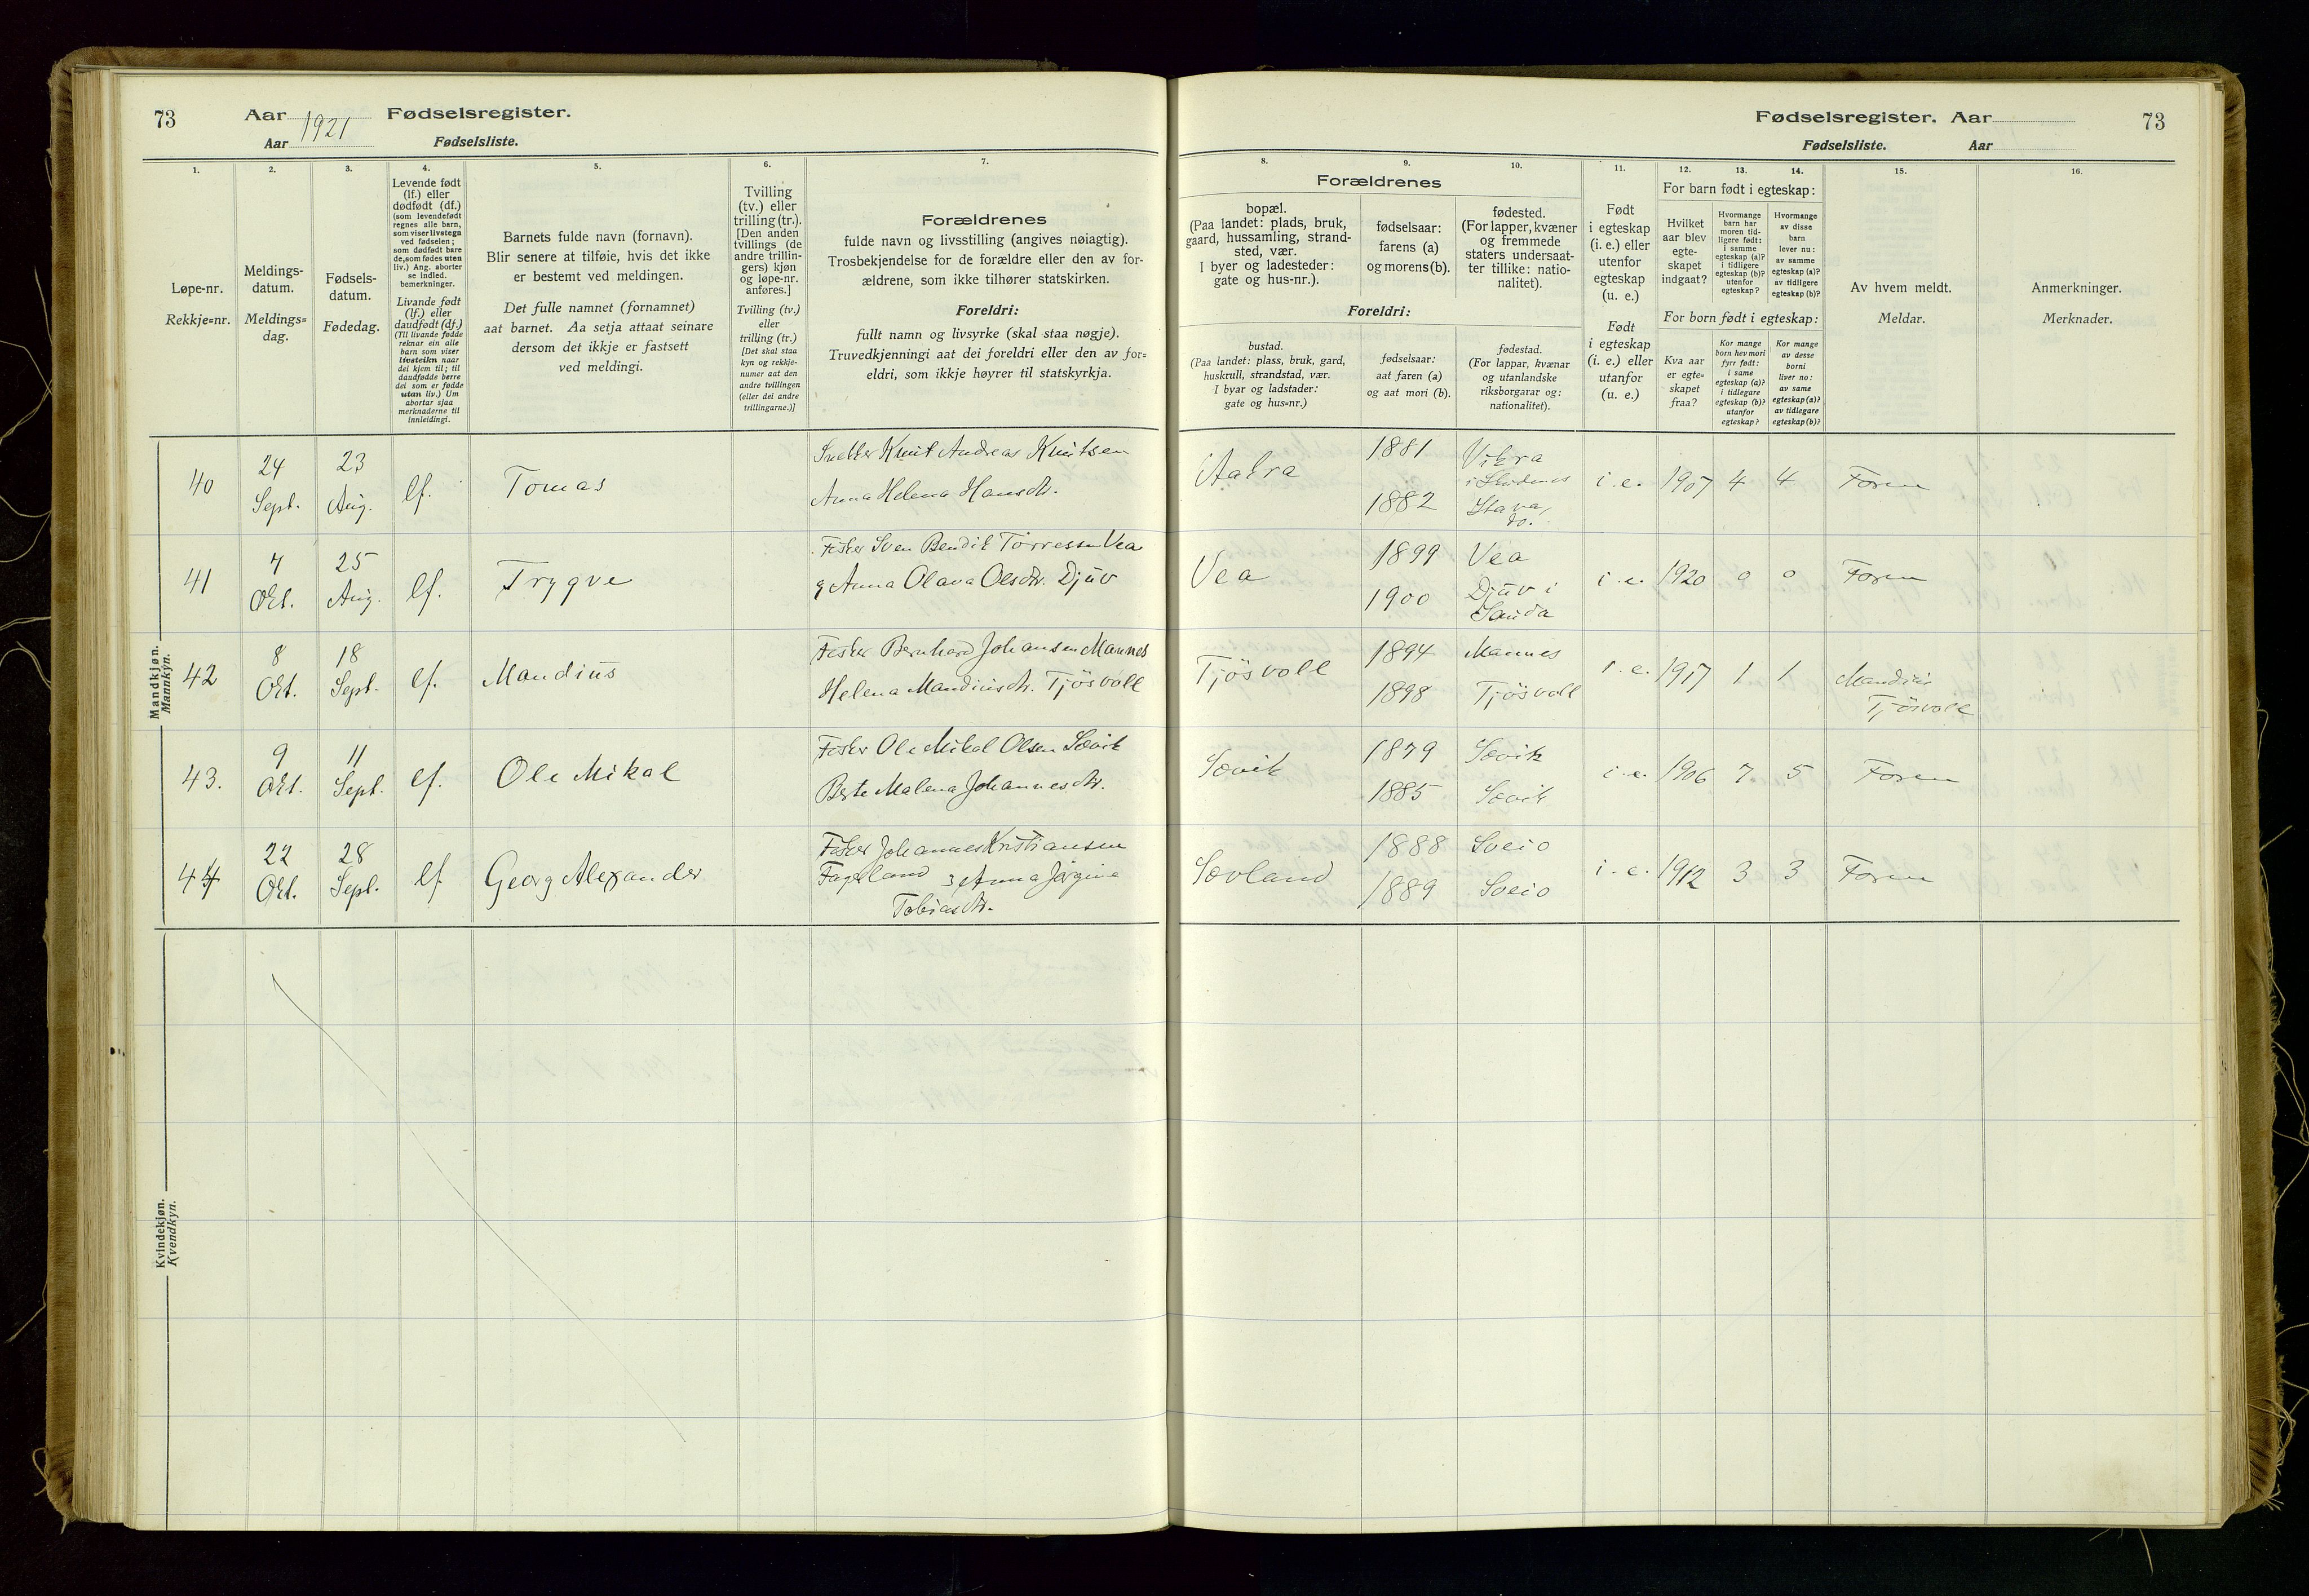 73
Aar 1921 Fødselsregister.
Aar Fødselsliste.
Fødselsregister. Aar
Fødselsliste. Aar
73
1.
Løpe-nr.
Rekkje=nr.
2.
Meldings-
datum.
Meldings=
dag.
3.
Fødsels-
datum.
Fødedag.
4.
Levende født
(lf.) eller
dødfødt (df.)
(som levendefødt
regnes alle barn,
som viser livstegn
ved fødselen;
som dødfødt bare
de, som fødes uten
liv.) Ang. aborter
se indled.
bemerkninger.
Livande født
(lf.) eller
daudfødt (df.)
(Til livande fødde
reknar ein alle
barn som viser
livsteikn naar
dei kjem til; til
daudfødde berre
dei som er fødde
utan liv.) Um
abortar sjaa
merknaderne til
innleidingi.
5.
Barnets fulde navn (fornavn).
Blir senere at tilføie, hvis det ikke
er bestemt ved meldingen.
Det fulle namnet (fornamnet)
aat barnet. Aa setja attaat seinare
dersom det ikkje er fastsett
ved meldingi.
6.
Tvilling
(tv.) eller
trilling (tr.).
[Den anden
tvillings (de
andre trillin-
gers) kjøn
og løpe-nr.
anføres.]
Tvilling (tv.)
eller
trilling (tr.)
[Det skal staa
kyn og rekkje-
numer aat den
andre tvillingen
(eller dei andre
trillingarne.)]
7.
Forældrenes
fulde navn og livsstilling (angives nøiagtig).
Trosbekjendelse for de forældre eller den av for-
ældrene, som ikke tilhører statskirken.
Foreldri:
fullt namn og livsyrke (skal staa nøgje).
Truvedkjenningi aat dei foreldri eller den av for=
eldri, som ikkje høyrer til statskyrkja.
8.
Forældrenes
bopæl.
(Paa landet: plads, bruk,
gaard, hussamling, strand-
sted, vær.
I byer og ladesteder:
gate og hus-nr.).
9.
fødselsaar:
farens (a)
og morens (b).
10.
fødested.
(For lapper, kvæner
og fremmede
staters undersaat-
ter tillike: natio-
nalitet).
Foreldri:
bustad.
(Paa landet: plass, bruk, gard,
huskrull, strandstad, vær.
I byar og ladstader:
gate og hus=nr.)
fødselsaar:
aat faren (a)
og aat mori (b).
fødestad.
(For lappar, kvænar
og utanlandske
riksborgarar og:
nationalitet).
11.
Født
i egteskap
(i. e.) eller
utenfor
egteskap
(u. e.)
Født
i egteskap
(i. e.) eller
utanfor
(u. e.)
12.
13.
14.
For barn født i egteskap:
Hvilket
aar blev
egte-
skapet
indgaat?
Hvormange
barn har
moren tid-
ligere født:
i samme
egteskap (a)?
i tidligere
egteskap (b)?
utenfor
egteskap?
Hvormange
av disse
barn
lever nu:
av samme
egteskap (a)?
av tidligere
egteskap (b)?
For born født i egteskap:
Kva aar
er egte=
skapet
fraa?
Kor mange
born hev mori
fyrr født:
i same
egteskap (a)?
i tidlegare
egteskap (b)?
utanfor
egteskap?
Kor mange
av desse
borni
liver no:
av same
egteskap (a)?
av tidlegare
egteskap (b)?
15.
Av hvem meldt.
Meldar.
16.
Anmerkninger.
Merknader.
Mandkjøn.
Mannkyn.
40 24 Sept. 23 Aug. lf. Tomas
Knut Andreas Knutsen
Anna Helena Hansdtr.
Aakra 1881 Vikra
i Skudenes
1882 Stava,
do.
i. e. 1907 4 4 Faren
41 7 Okt. 25 Aug. lf. Trygve
Fisker Sven Bendik Torressen Vea
g Anna Olava Olsdtr. Djuv
Vea 1899 Vea
1900 Djuv i
Sauda
i. e. 1920 0 0 Faren
42 8 Okt. 18 Sept. lf. Mandius
Fisker Bernhard Johansen Mannes
Helena Mandiusdtr. Tjøsvoll
Tjösvoll 1894 Mannes
1898 Tjösvoll
i. e. 1917 1 1 Mandius
Tjösvoll
43. 9 Okt. 11 Sept. lf. Ole Mikal
Fisker Ole Mikal Olsen Sævik
Berte Malena Johannesdtr.
Sævik 1879 Sævik
1885 Sævik
i. e. 1906 7 5 Faren
44 22 Okt. 28 Sept. lf Georg Alexander
Fisker Johannes Kristiansen
Fagerland g Anna Jørgine
Tobiasdtr.
Sævland 1888 Sveio
1889 Sveio
i. e. 1912 3 3 Faren
Kvindekjøn.
Kvendkyn.